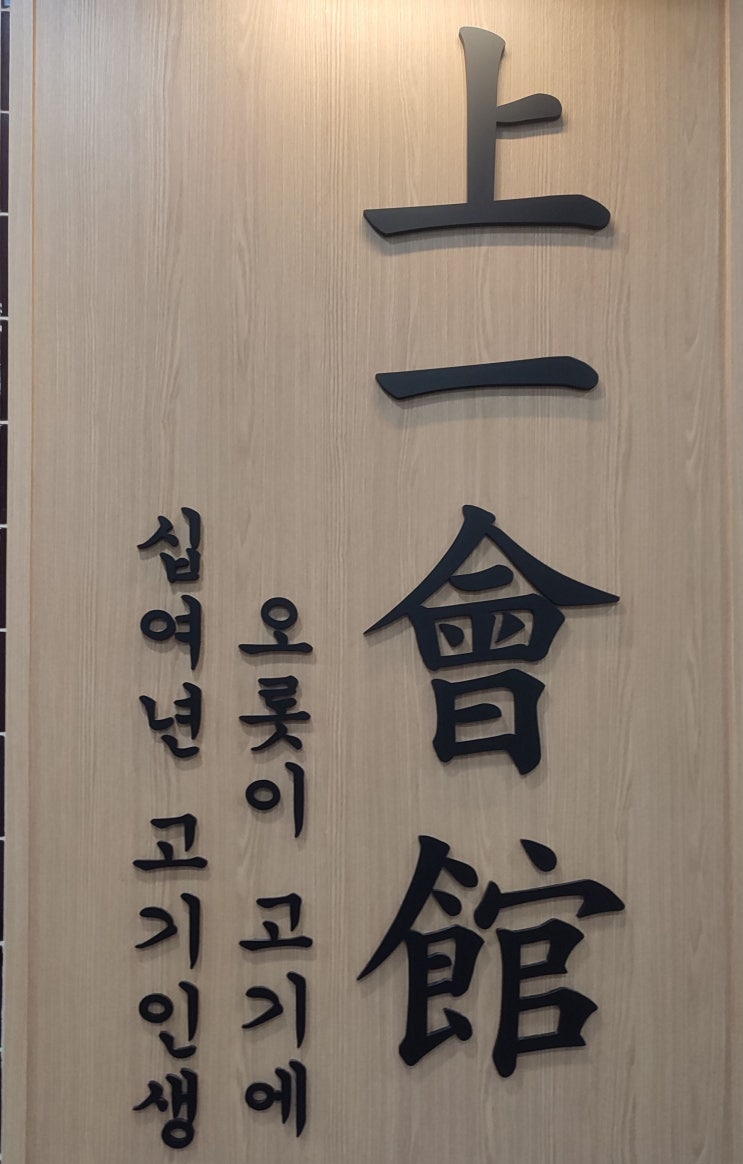 上一會館
오롯이 고기에
십여년 고기인생